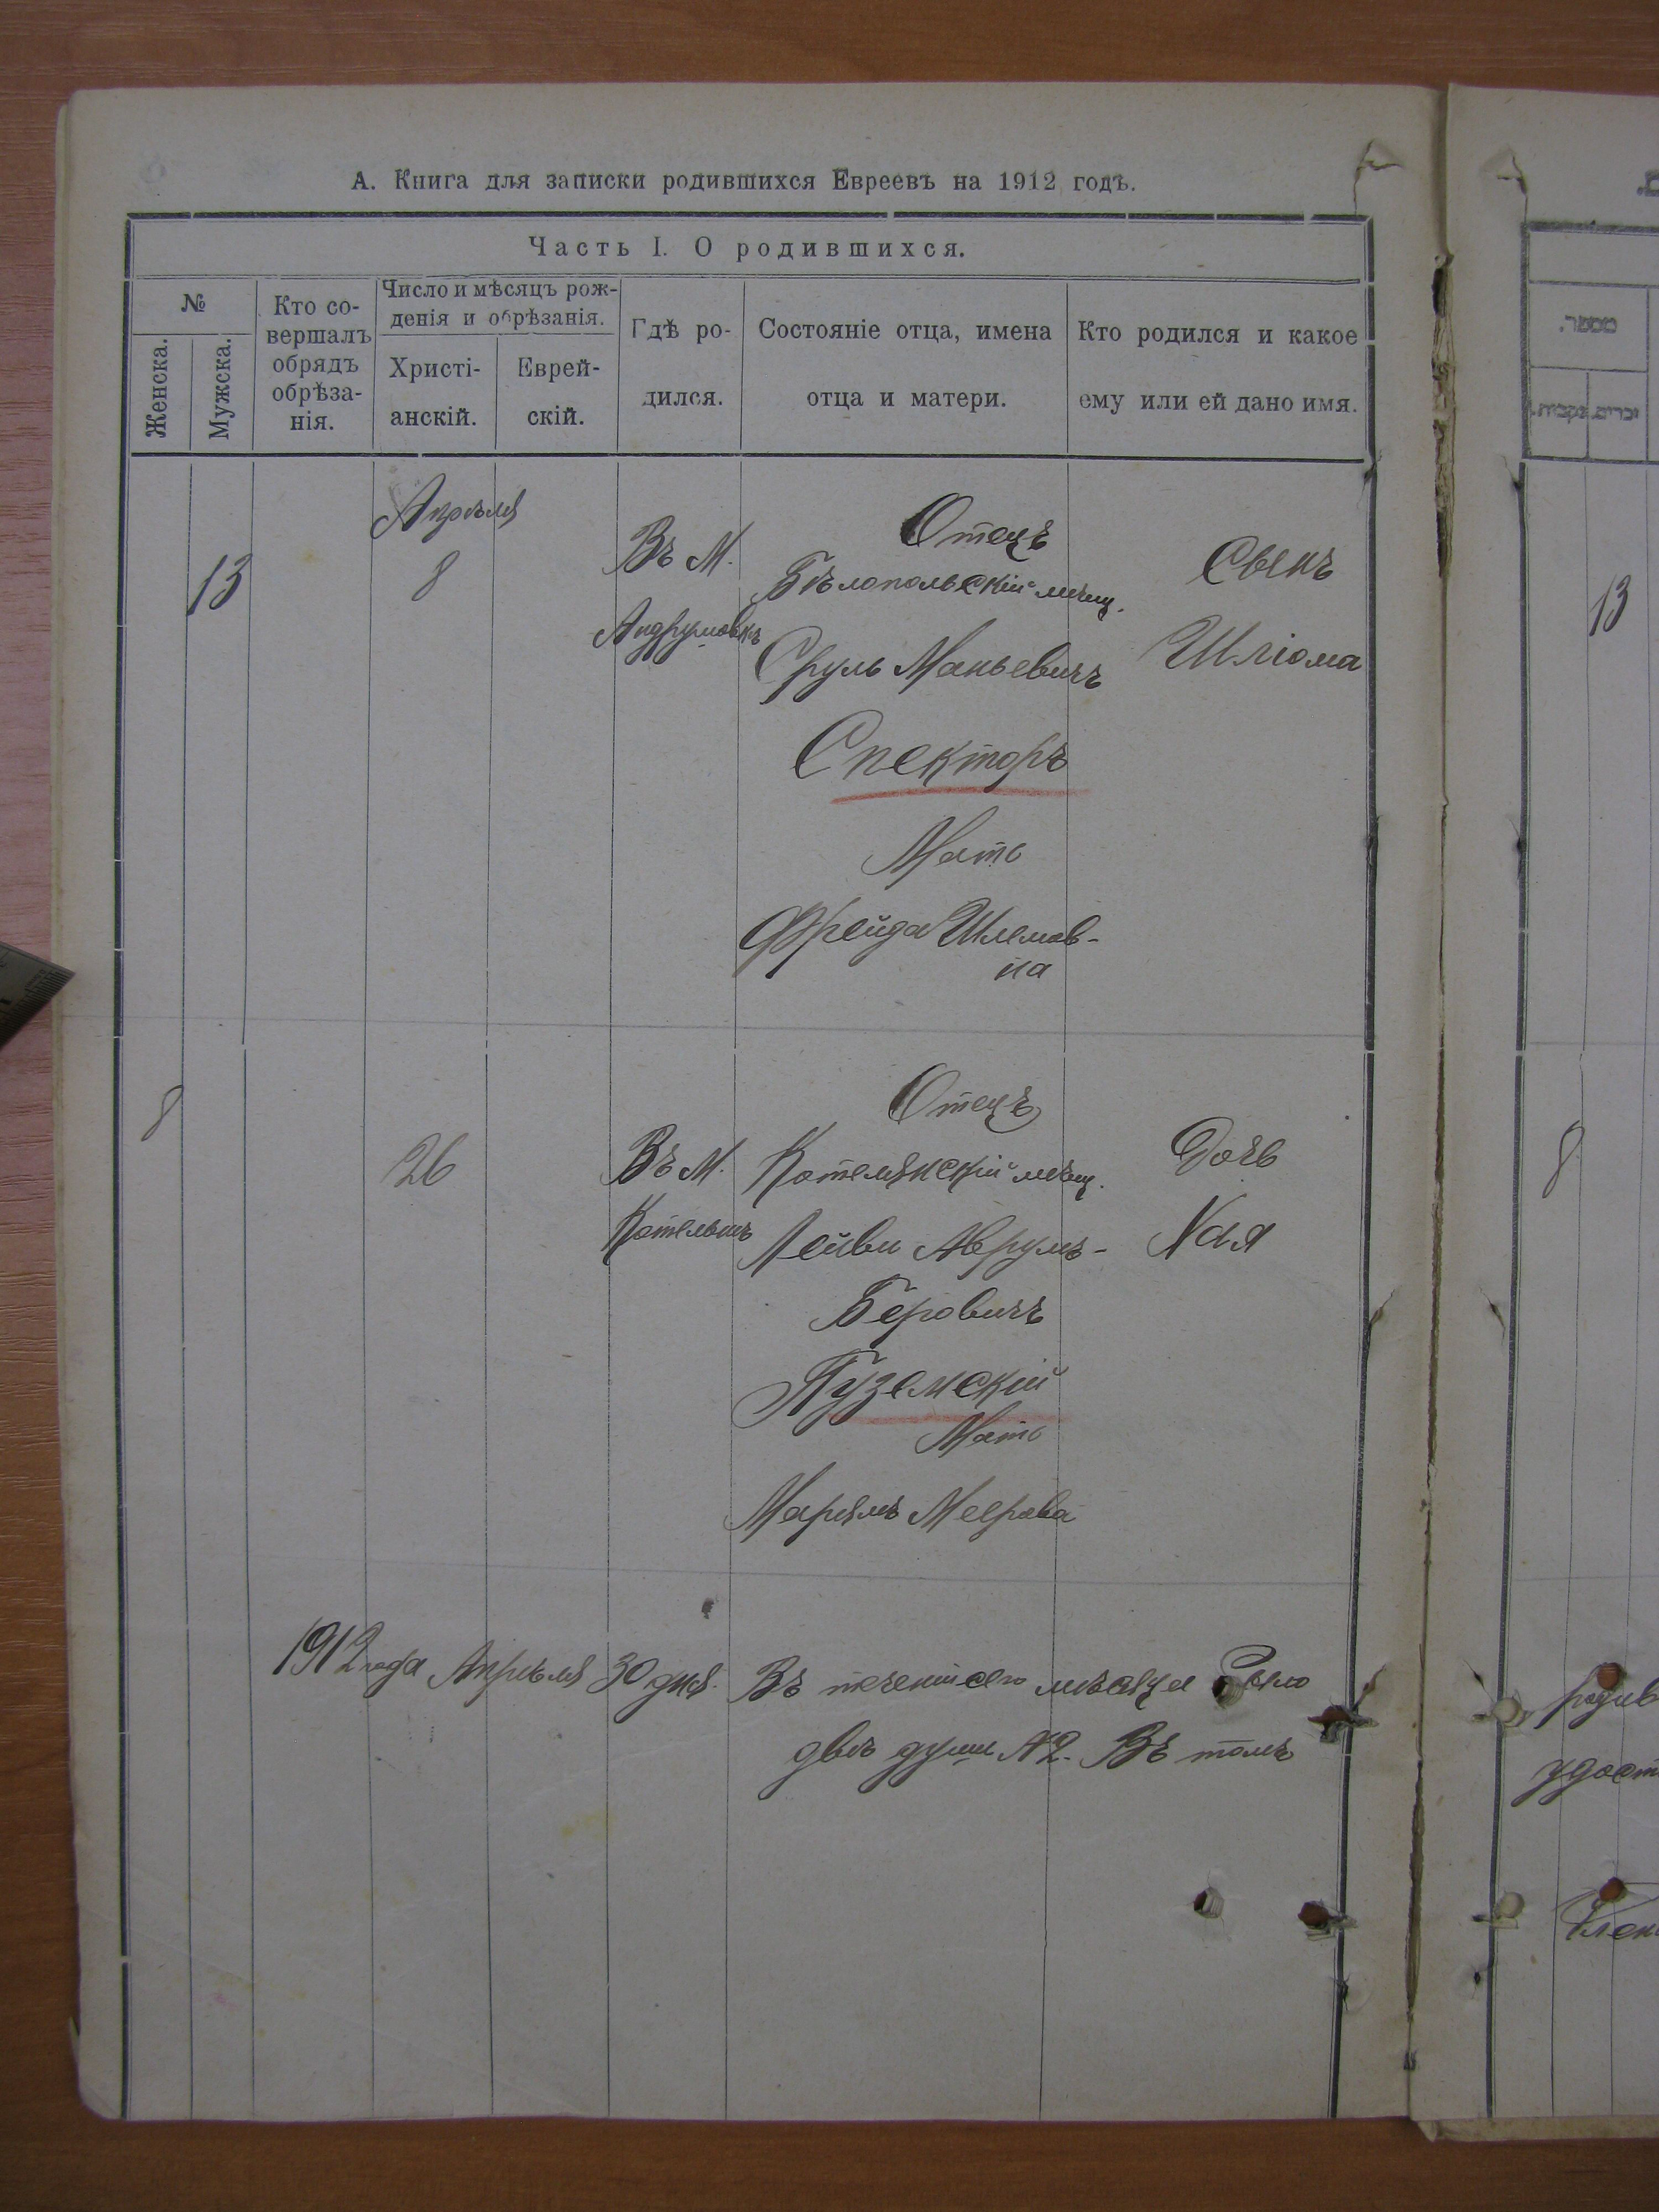 А. Книга для записки родившихся Евреевъ на 1912 годъ.
Часть I. О родившихся.
№
Женска.
Мужска.
Кто со-
вершалъ
обрядъ
обрѣза-
нія.
Число и мѣсяцъ рож-
денія и обрѣзанія.
Христі-
анскій.
Еврей-
скій.
Гдѣ ро-
дился.
Состояніе отца, имена
отца и матери.
Кто родился и какое
ему или ей дано имя.
13
Апрѣля
8
Въ М.
Андрушовкѣ
Отецъ
Бѣлопольскій мѣщ.
Сруль Маньевичъ
Спекторъ
Мать
Фрейда Шлемов-
на
Сынъ
Шліома
13
8
26
Въ М.
Котельнѣ
Отецъ
Котелянскій мѣщ.
Лейви Аврумъ-
Беровичъ
Пуземскій
Мать
Марямъ Меерова
Дочь
Хая
8
1912 года Апрѣля 30 дня. Въ теченіи сего мѣсяца было
двѣ души №2. Въ томъ
родив
удост